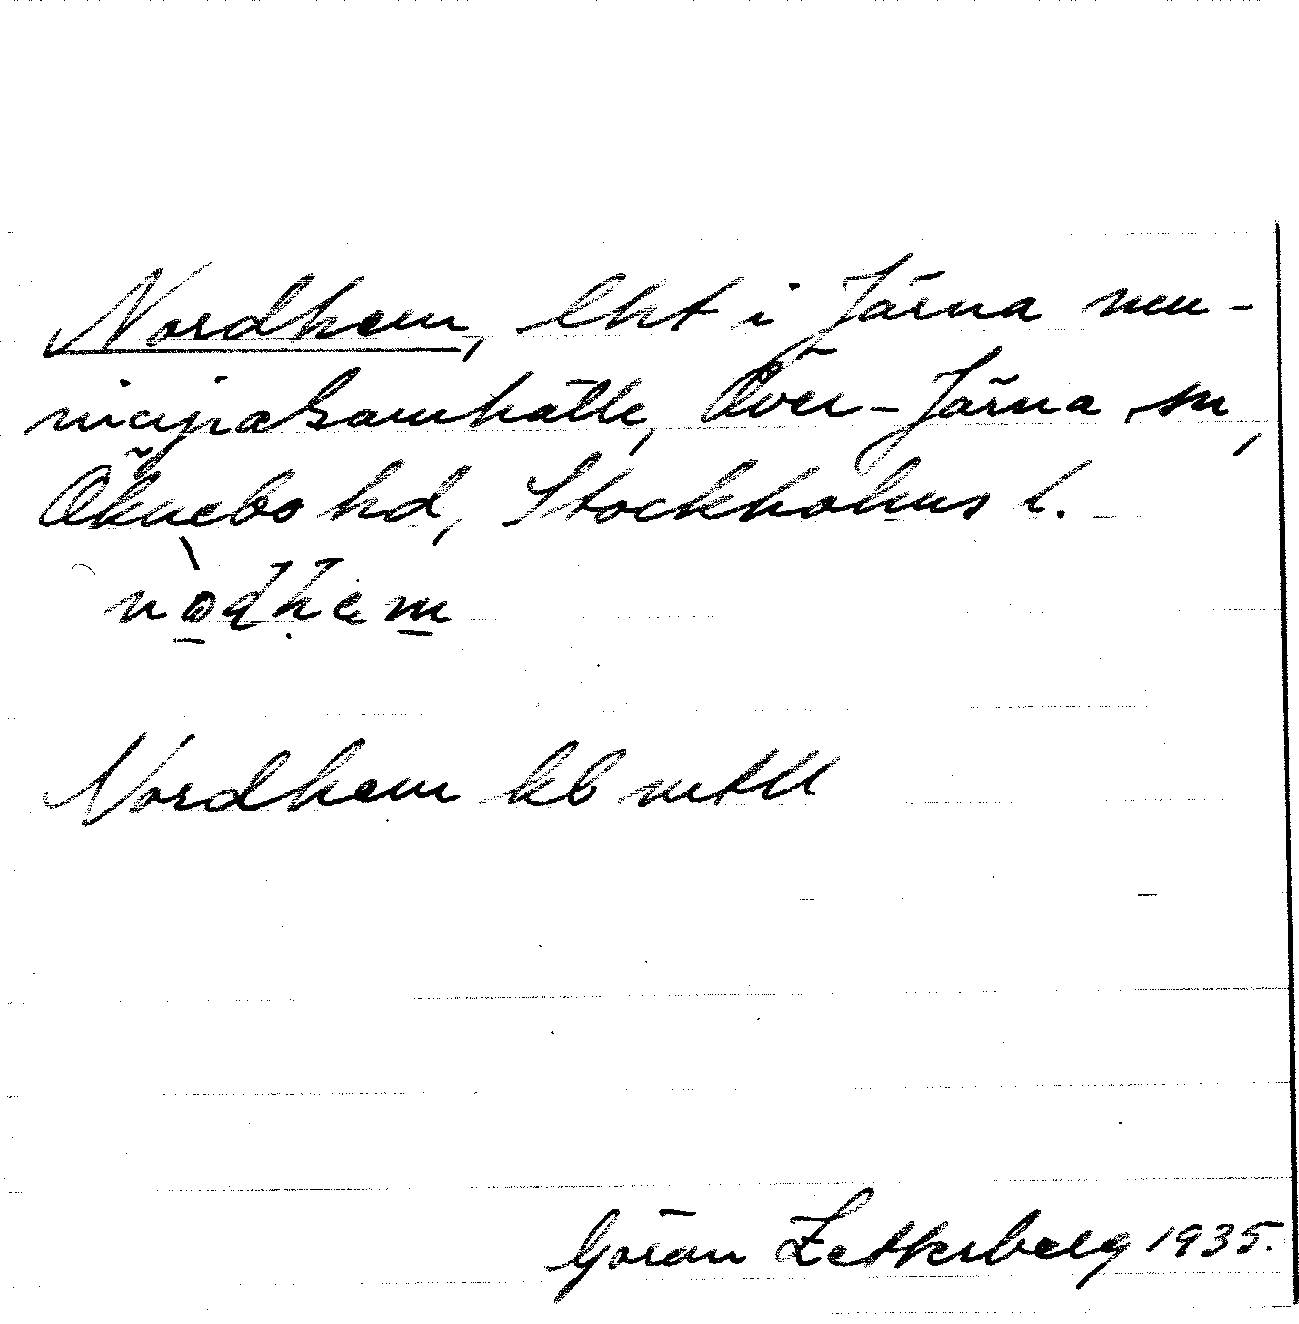 Nordhem, lht i Järna mu-
nicipalsamhälle, Över-Järna sn,
Öknebo hd, Stockholms l.
nòdhem
Nordhem kb mtll
Göran Zetterberg 1935.